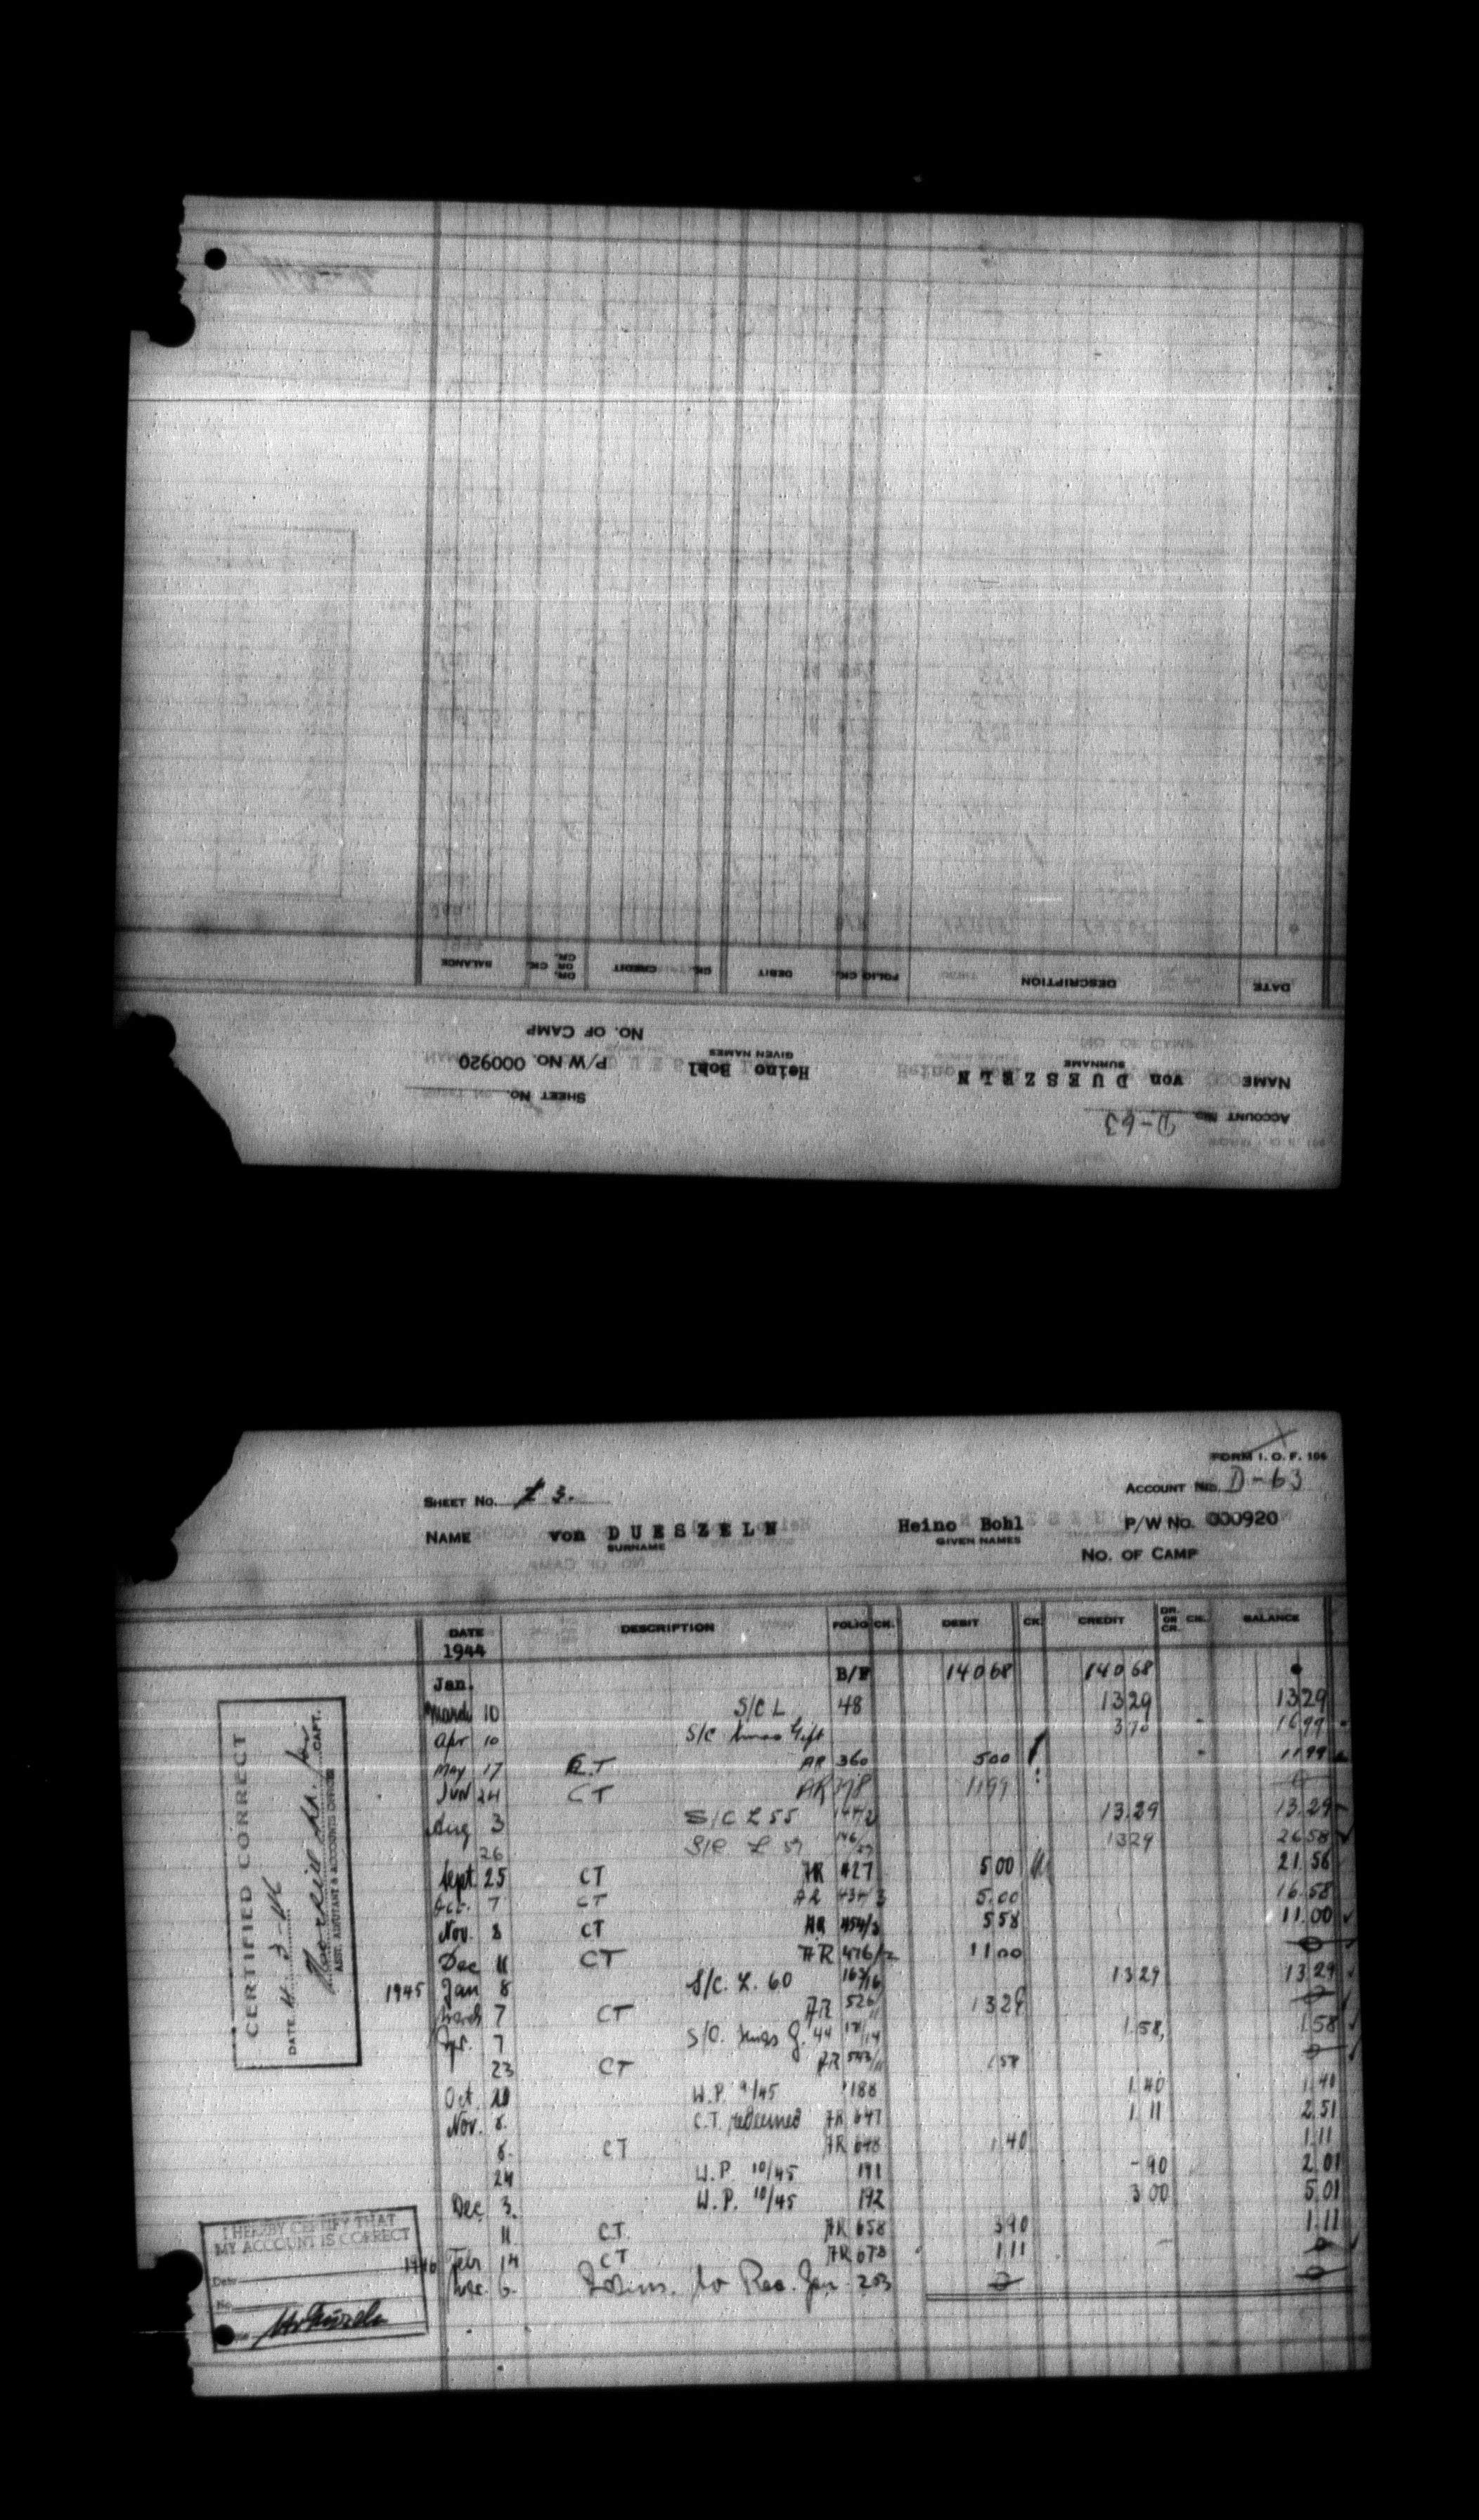 BALANCE DR. OR CR. CK. CREDIT CK. DEBIT CK. FOLIO DESCRIPTION DATE
NO. OF CAMP
NAME von DUESZELN Heino Bohl P/W No. 000920
SURNAME GIVEN NAMES
SHEET No.
ACCOUNT No. D-63
FORM I. O. F. 106
SHEET No. 3. ACCOUNT No. D-63
NAME von DUESZELN Heino Bohl P/W No. 000920
SURNAME GIVEN NAMES
NO. OF CAMP
DATE DESCRIPTION FOLIO CK. DEBIT CK. CREDIT DR. OR CR. CK. BALANCE
1944
Jan. B/F 140 68 140 68
March 10 S/C L 48 13 29 13 29
Apr 10 S/C Xmas Gift 3 70 16 99
May 17 CT AR 360 5 00 11 99
Jun 24 CT AR 398 11 99 0
Aug 3 S/C L 55 13.29 13.29
26 S/C L 59 13 29 26 58
Sept 25 CT AR 427 5 00 21.58
Oct. 7 CT AR 434/3 5.00 16.58
Nov. 8 CT AR 454/3 5 58 11.00
Dec 11 CT AR 476/2 11 00 0
1945 Jan 8 S/C. L. 60 163/16 13 29 13 29
March 7 CT AR 526/11 13 29 0
Apr. 7 S/C. Xmas G. 44 1 58 1 58
23 CT AR 543/11 1 58 0
Oct. 20 W.P. 9/45 188 1 40 1 40
Nov. 8. C.T. redeemed AR 647 1 11 2 51
8. CT AR 648 1 40 1 11
24 W.P. 10/45 191 - 90 2 01
Dec 3. W.P. 10/45 192 3 00 5 01
11 CT. AR 658 3 90 1.11
1946 Febr 14 CT AR 678 1 11 0
6. to Rec. Gen. 203 0 0
CERTIFIED CORRECT
DATE
CAPT.
ASST. ADJUTANT & ACCOUNTS OFFICER
I HEREBY CERTIFY THAT
MY ACCOUNT IS CORRECT
Date
No.